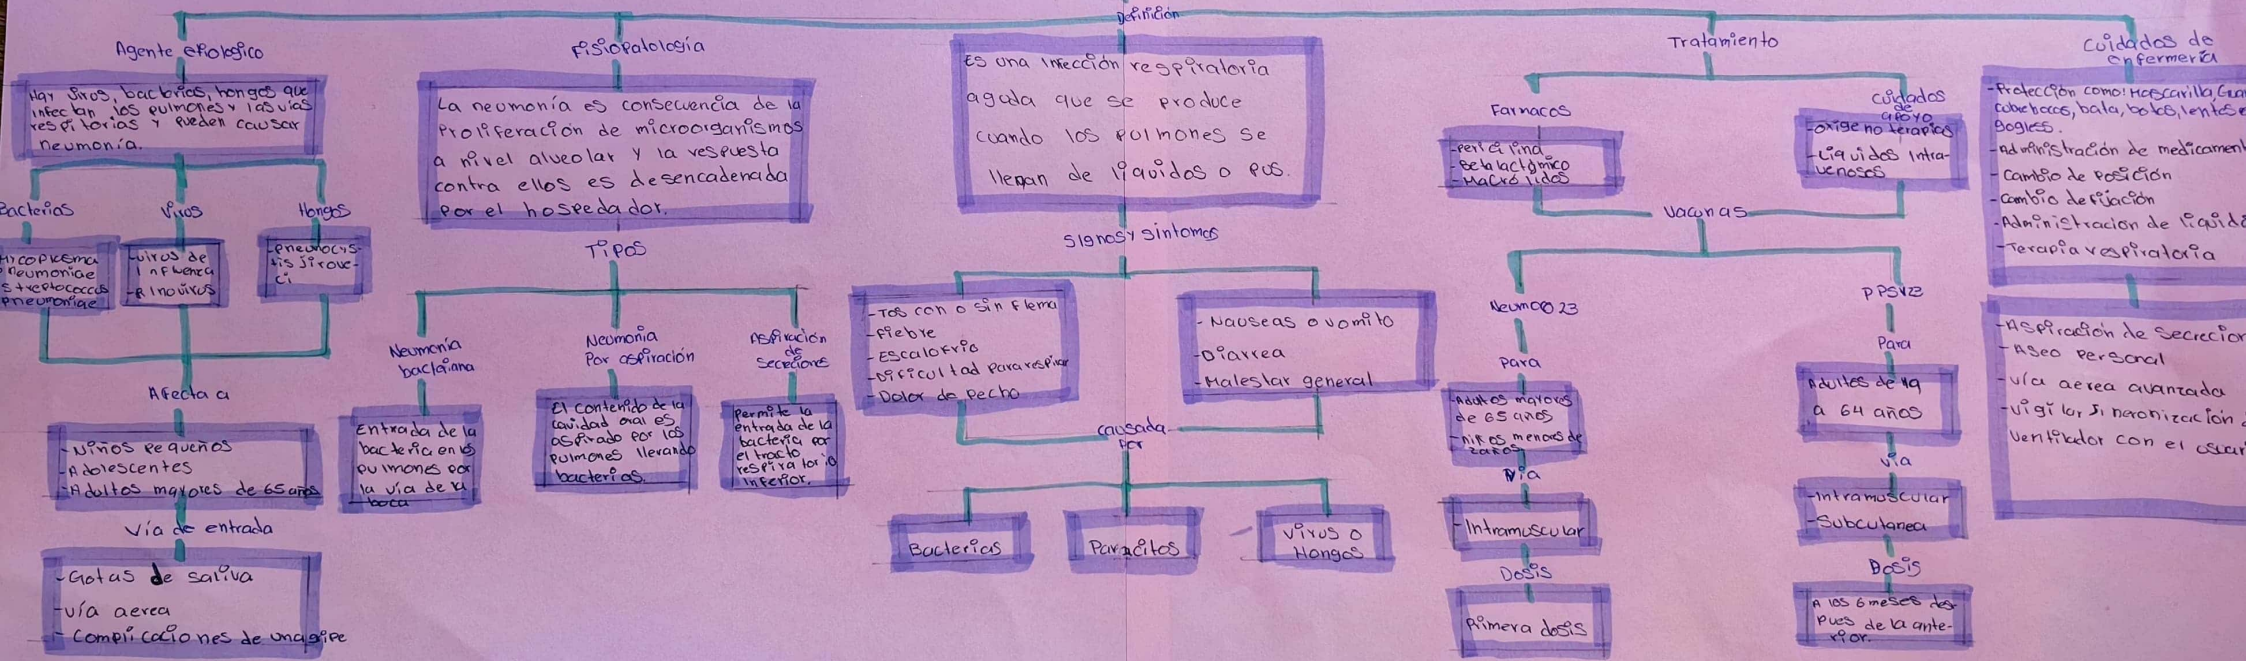 Definición
Agente etiologico
Hay Virus, bacterias, hongos que
infectan los pulmones y las vías
respitorias y pueden causar
neumonía.
Bacterias
Virus
Hongos
Micoplasma
Pneumoniae
Streptococcus
pneumoniae
-virus de
Influenza
-Rinovirus
-pneumocys-
tis Jirove-
ci
Afecta a
-Niños pequeños
-Adolescentes
-Adultos mayores de 65 años
Vía de entrada
-Gotas de saliva
-vía aerea
- Complicaciones de una gipe
Fisiopatología
La neumonía es consecuencia de la
Proliferación de microorganismos
a nivel alveolar y la respuesta
contra ellos es desencadenada
por el hospedador.
Tipos
Neumonía
bacteriana
Entrada de la
bacteria en los
pulmones por
la vía de la
boca
Neumonia
Por aspiración
El contenido de la
cavidad oral es
aspirado por los
pulmones llevando
bacterias.
Aspiración
de
Secreciones
permite la
entrada de la
bacteria por
el tracto
respiratorio
inferior.
Es una infección respiratoria
aguda que se produce
cuando los pulmones se
llenan de líquidos o pus.
Signos y sintomas
-Tos con o sin flema
-Fiebre
-Escalofrio
-Dificultad para respirar
- Dolor de pecho
- Nauseas o vomito
-Diarrea
-Malestar general
causada
por
Bacterias
Paracitos
Virus o
Hongos
Tratamiento
Farmacos
-penicilina
-Betalactámico
-Macrólidos
Cuidados
de
apoyo
-oxigenoterapias
-Liquidos Intra-
venosos
Vacunas
Neumo 23
Para
-Adultos mayores
de 65 años
-niños menores de
2 años
Vía
-Intramuscular
Dosis
Primera dosis
PPSV23
Para
Adultos de 19
a 64 años
vía
-Intramuscular
-Subcutanea
Dosis
A los 6 meses des-
pues de la ante-
rior.
Cuidados de
enfermería
-Protección como: Mascarilla,
bata, botas, lentes
gogless.
-administración de
- Cambio de Posición
-cambio de fijación
-Administracion de
-Terapia respiratoria
-Aspiración de
- Aseo Personal
-vía aerea avanzada
-vigilar sincronización
ventilador con el